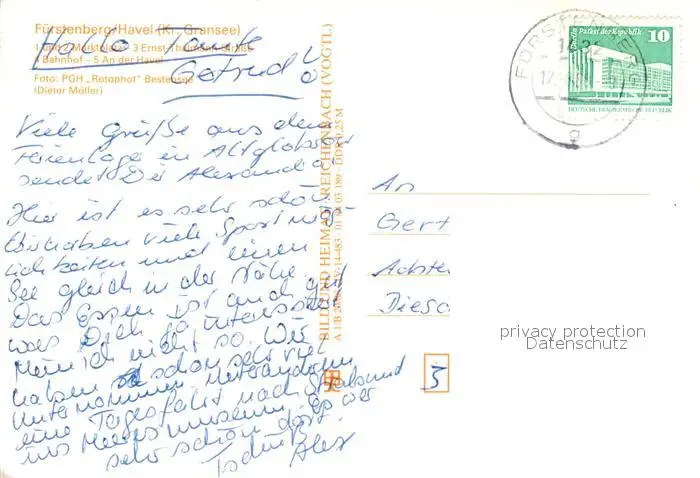 Fürstenberg/Havel (Kr. Gransee)
1 und 2 Marktplatz 3 Ernst-Thälmann-Straße
4 Bahnhof - 5 An der Havel
Foto: PGH „Rotophot" Bestensee
(Dieter Möller)
Hallo Tante
Getrud
Viele Grüße aus dem
Ferienlage in Altglobsow
sendet Dir Alexandra.
Hier ist es sehr schön
Wir haben viele Sportmög-
lichkeiten und einen
See gleich in der Nähe.
Das Essen ist auch gut
was Dich so interessiert
mein ich nicht so. Wir
haben schon sehr viel
Unternommen unter anderem
eine Tagesfahrt nach Stralsund
ins Meeresmuseum. Es war
sehr schön dort
Tschüß Alex
BILD UND HEIMAT REICHENBACH (VOGTL)
FÜRSTENBERG
Berlin Palast der Republik
10
DEUTSCHE DEMOKRATISCHE REPUBLIK
An
Gert
Achte
Diesd
privacy protection
Datenschutz
5